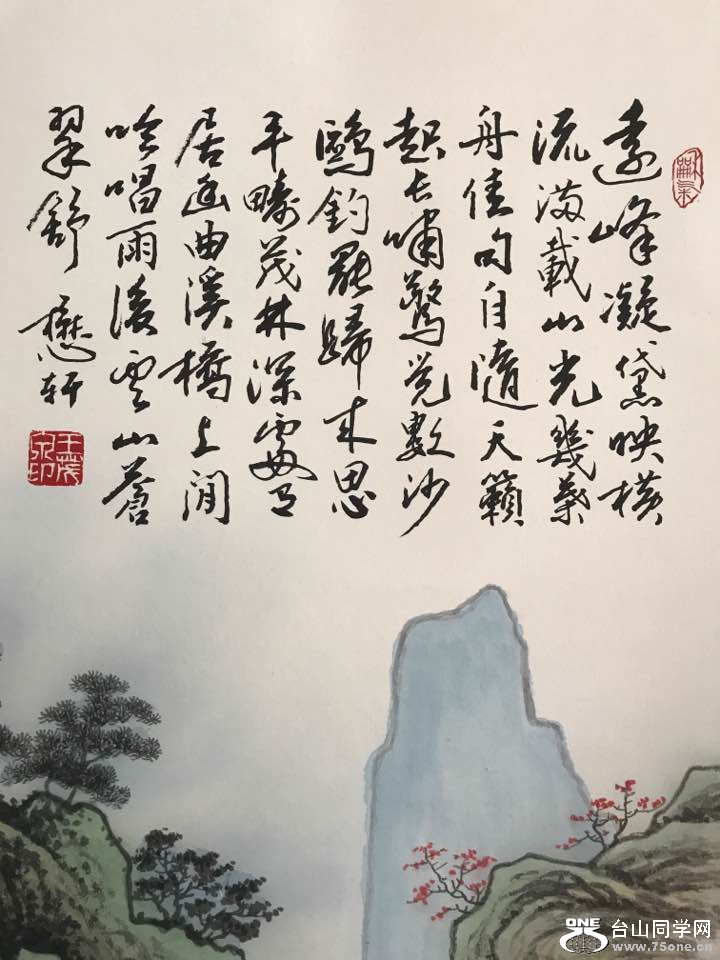 遠峰凝黛映橫
流滿載山光幾葉
舟佳句自隨天籟
起長嘯驚覺數沙
鷗釣罷歸來思
平疇茂林深處有
居幽曲溪橋上閒
吟唱雨後雲山蒼
翠舒 懋軒
ONE
台山同学网
www.75one.cn